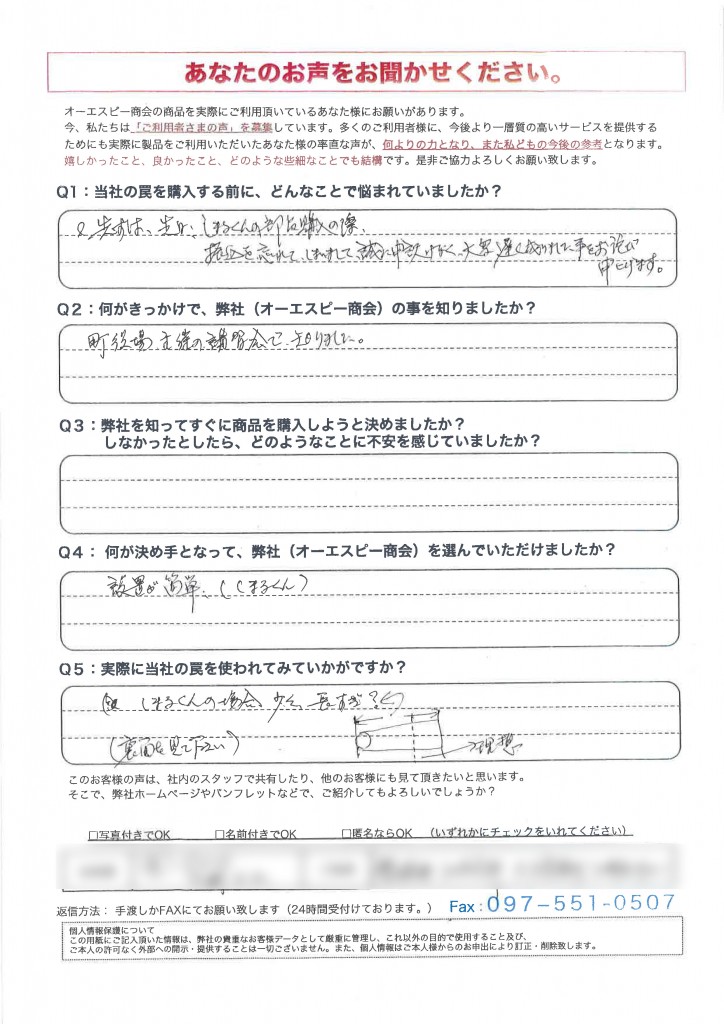 あなたのお声をお聞かせください。
オーエスピー商会の商品を実際にご利用頂いているあなた様にお願いがあります。
今、私たちは「ご利用者さまの声」を募集しています。多くのご利用者様に、今後より一層質の高いサービスを提供する
ためにも実際に製品をご利用いただいたあなた様の率直な声が、何よりの力となり、また私どもの今後の参考となります。
嬉しかったこと、良かったこと、どのような些細なことでも結構です。是非ご協力よろしくお願い致します。
Q1：当社の罠を購入する前に、どんなことで悩まれていましたか？
先ずは、先日、しまるくんの部品購入の際、
振込を忘れてしまいまして誠に申訳けなく、大変遅く成りました事をお詫び
申上げます。
Q2：何がきっかけで、弊社（オーエスピー商会）の事を知りましたか？
町役場主催の講習会で知りました。
Q3：弊社を知ってすぐに商品を購入しようと決めましたか？
しなかったとしたら、どのようなことに不安を感じていましたか？
Q4： 何が決め手となって、弊社（オーエスピー商会）を選んでいただけましたか？
設置が簡単、（しまるくん）
Q5：実際に当社の罠を使われてみていかがですか？
しまるくんの場合、少々長すぎ？
（裏面を見て下さい）
理想
このお客様の声は、社内のスタッフで共有したり、他のお客様にも見て頂きたいと思います。
そこで、弊社ホームページやパンフレットなどで、ご紹介してもよろしいでしょうか？
□写真付きでOK □名前付きでOK □匿名ならOK （いずれかにチェックをいれてください）
返信方法： 手渡しかFAXにてお願い致します（24時間受付ております。） Fax：097-551-0507
個人情報保護について
この用紙にご記入頂いた情報は、弊社の貴重なお客様データとして厳重に管理し、これ以外の目的で使用すること及び、
ご本人の許可なく外部への開示・提供することは一切ございません。また、個人情報はご本人様からのお申出により訂正・削除致します。